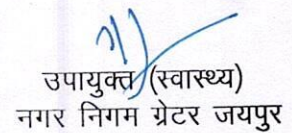 उपायुक्त (स्वास्थ्य)
नगर निगम ग्रेटर जयपुर